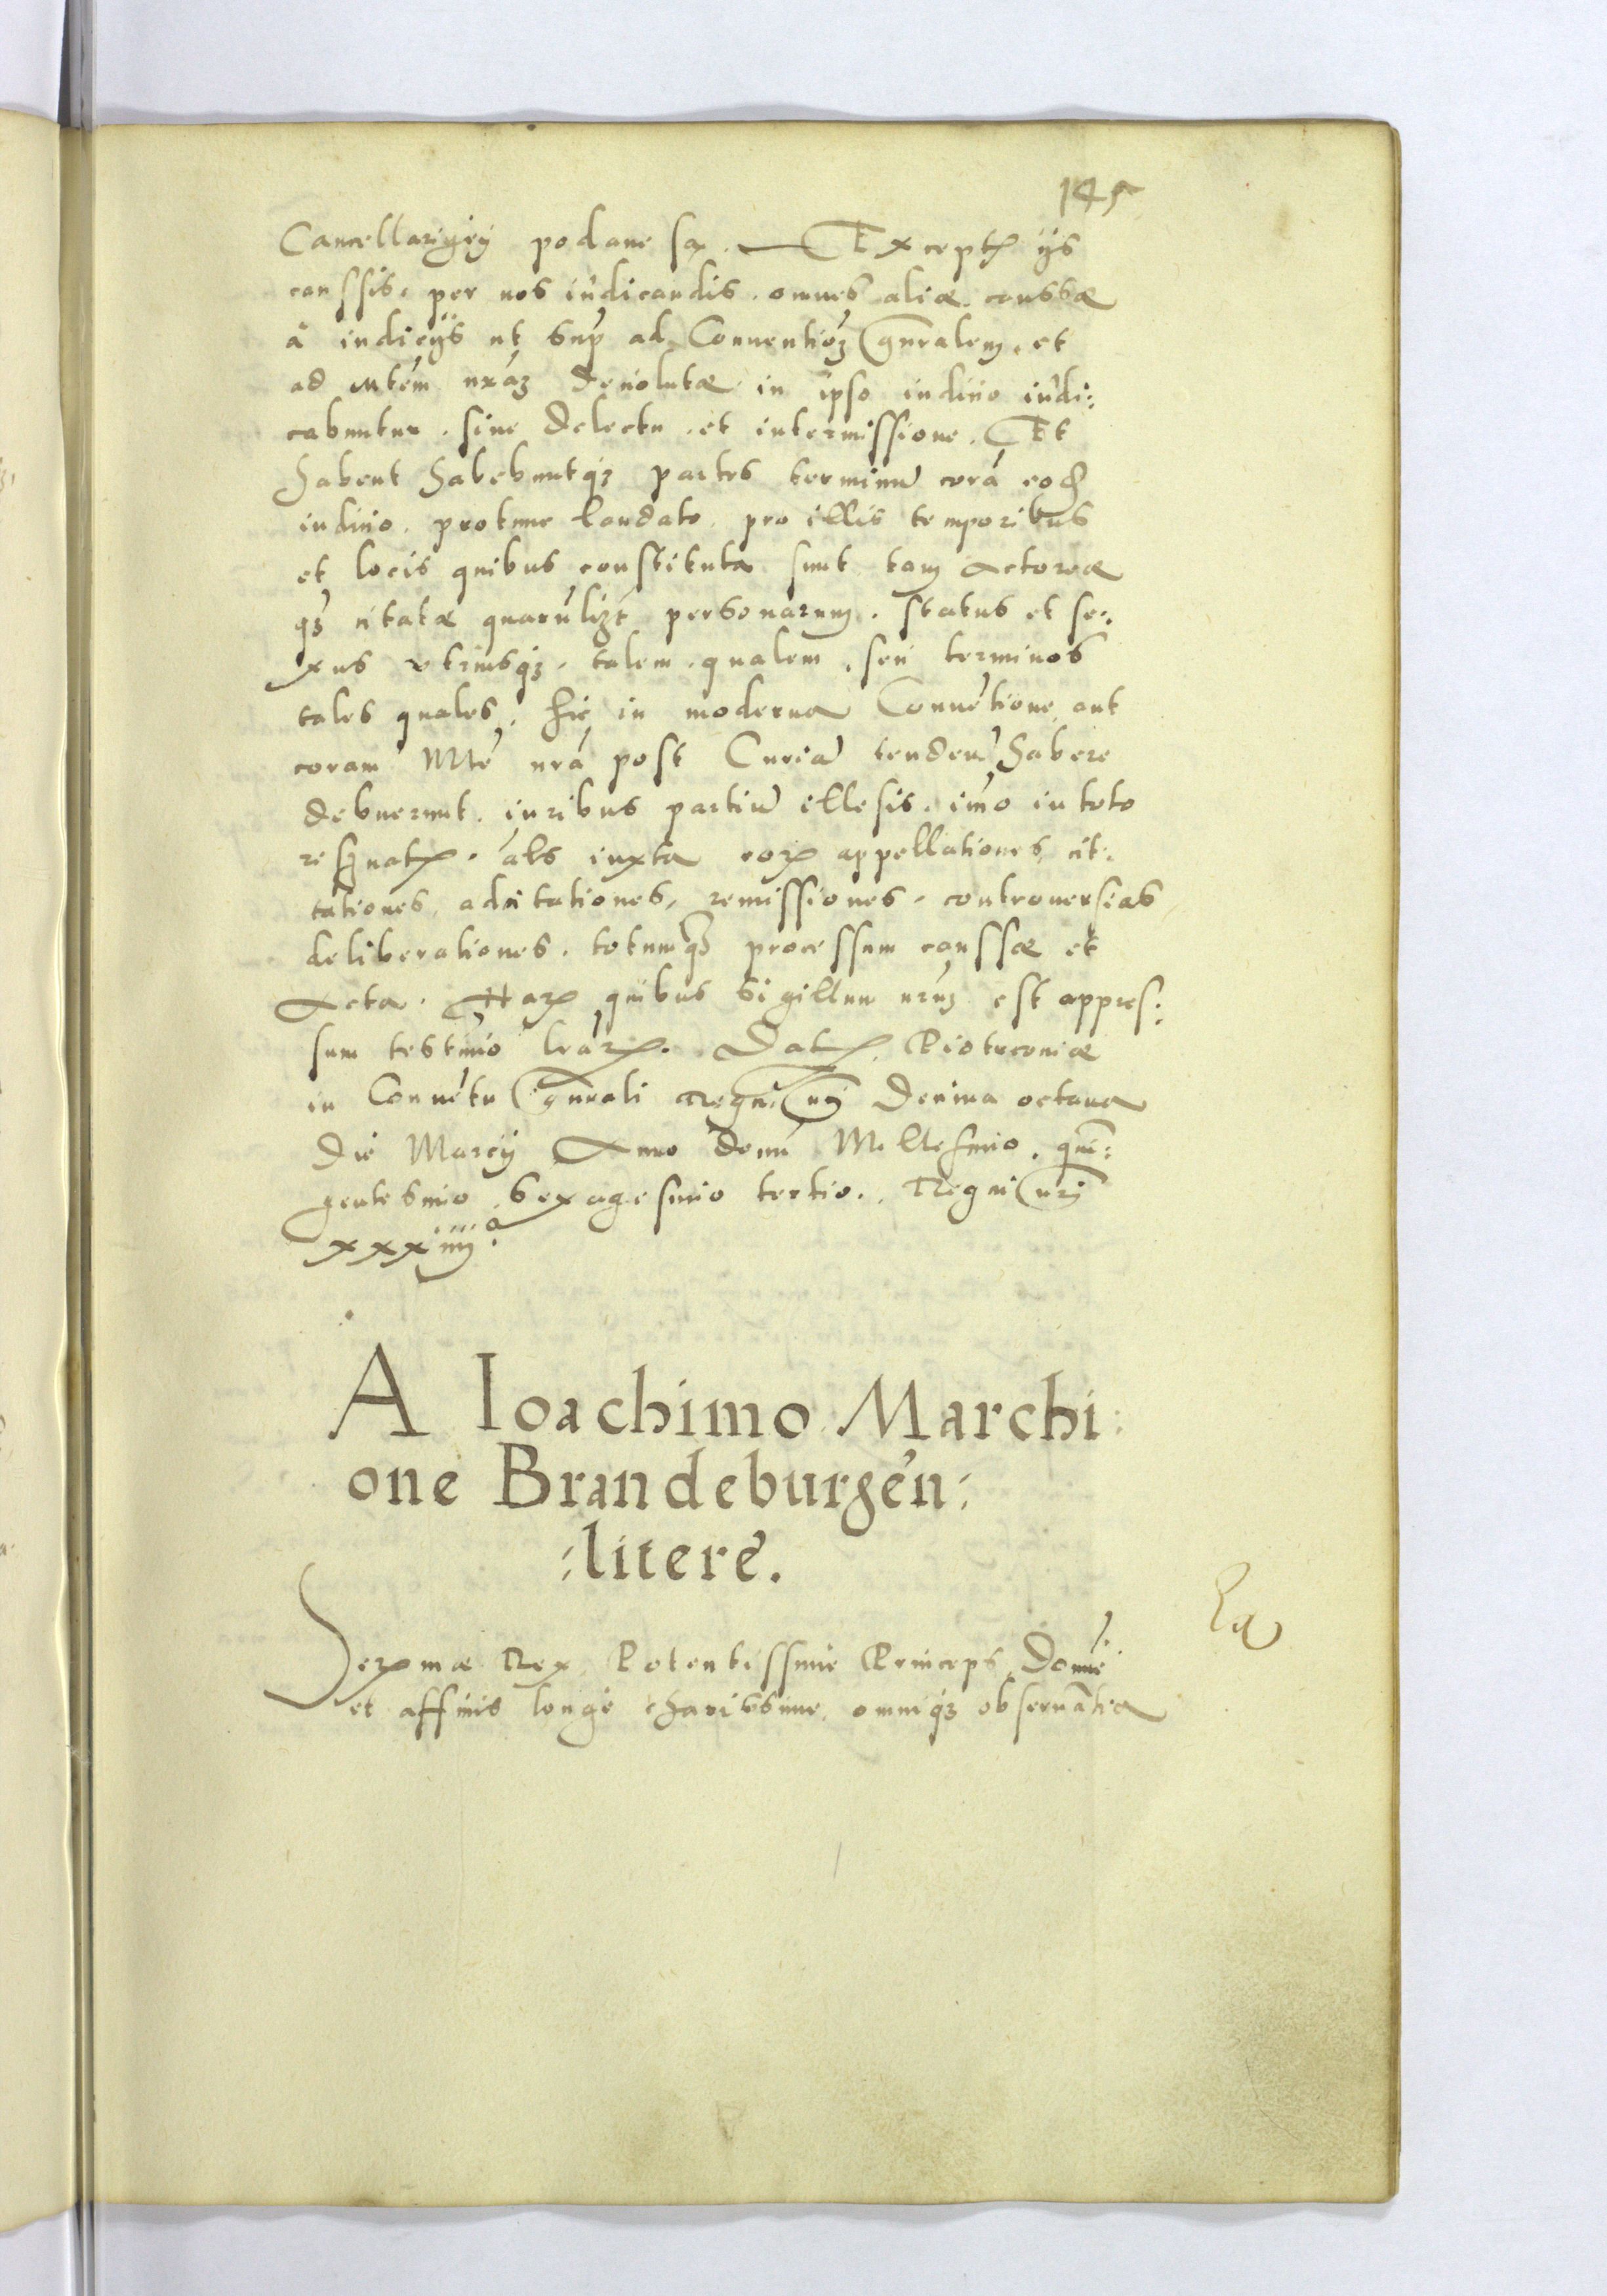 145
Cancellarijej podane są. Exceptis ijs
caussis per nos iudicandis. omnes aliæ caussæ
à iudicijs ut sup ad Conuentioẽ gnralem, et
ad Mtem nrãm deuolutæ in ipso iudicio iudi:
cabuntur. sine delectu et intermissione. Et
habent habebuntq; partes terminũ corã eodẽ
iudicio. pro tunc laudato. pro illis temporibus
et locis quibus constituta sunt tam actoreæ
q; citatæ quarulibt personarum. status et se:
xus vtriusq;. talem qualem, seu terminos
tales quales, hic in moderna Conuẽtione aut
coram Mte nrã post Curiã tendeñ habere
debuerunt. iuribus partiũ illesis. imo in toto
reseruatis. als iuxta eorum appellationes, cit:
tationes, adcitationes, remissiones. controuersias,
deliberationes. totumq; processum caussæ et
Acta. Harum quibus Sigillum nrum est appres:
sum testimo lrãrum. Datum Piotrconiæ
in Conuẽtu gnrali Regni nri Decima octaua
Die Marcij Anno domi Millesimo. quin:
gentesimo Sexagesimo tertio. Regni nri
xxxiiij°.
A Ioachimo Marchi:
one Brandeburgeñ:
:litere.
Serenmæ Rex, Potentissime Princeps, Domine
et affinis longe charissime, omniq; obseruãtia